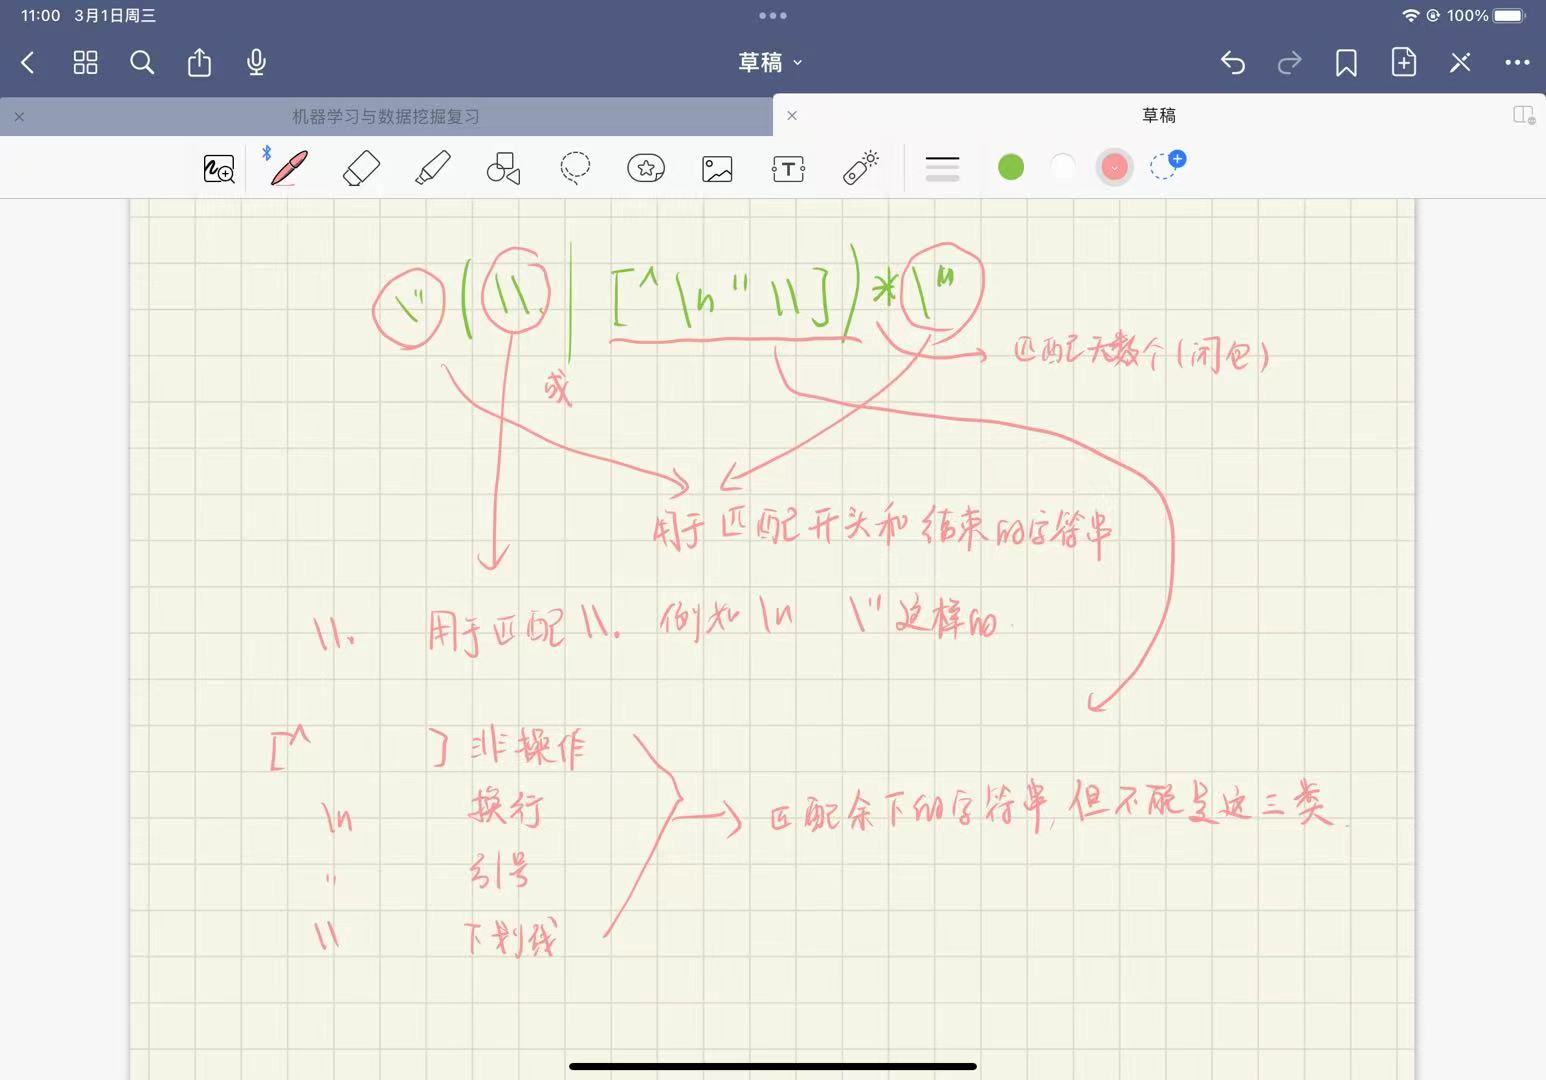 11:00 3月1日周三
100%
草稿
机器学习与数据挖掘复习
草稿
\" (\\.| [^\n"\\])*\"
匹配无数个(闭包)
或
用于匹配开头和结束的字符串
\\. 用于匹配\\. 例如\n \"这样的.
[^ ] 非操作
\n 换行
匹配余下的字符串,但不能是这三类.
" 引号
\\ 下划线